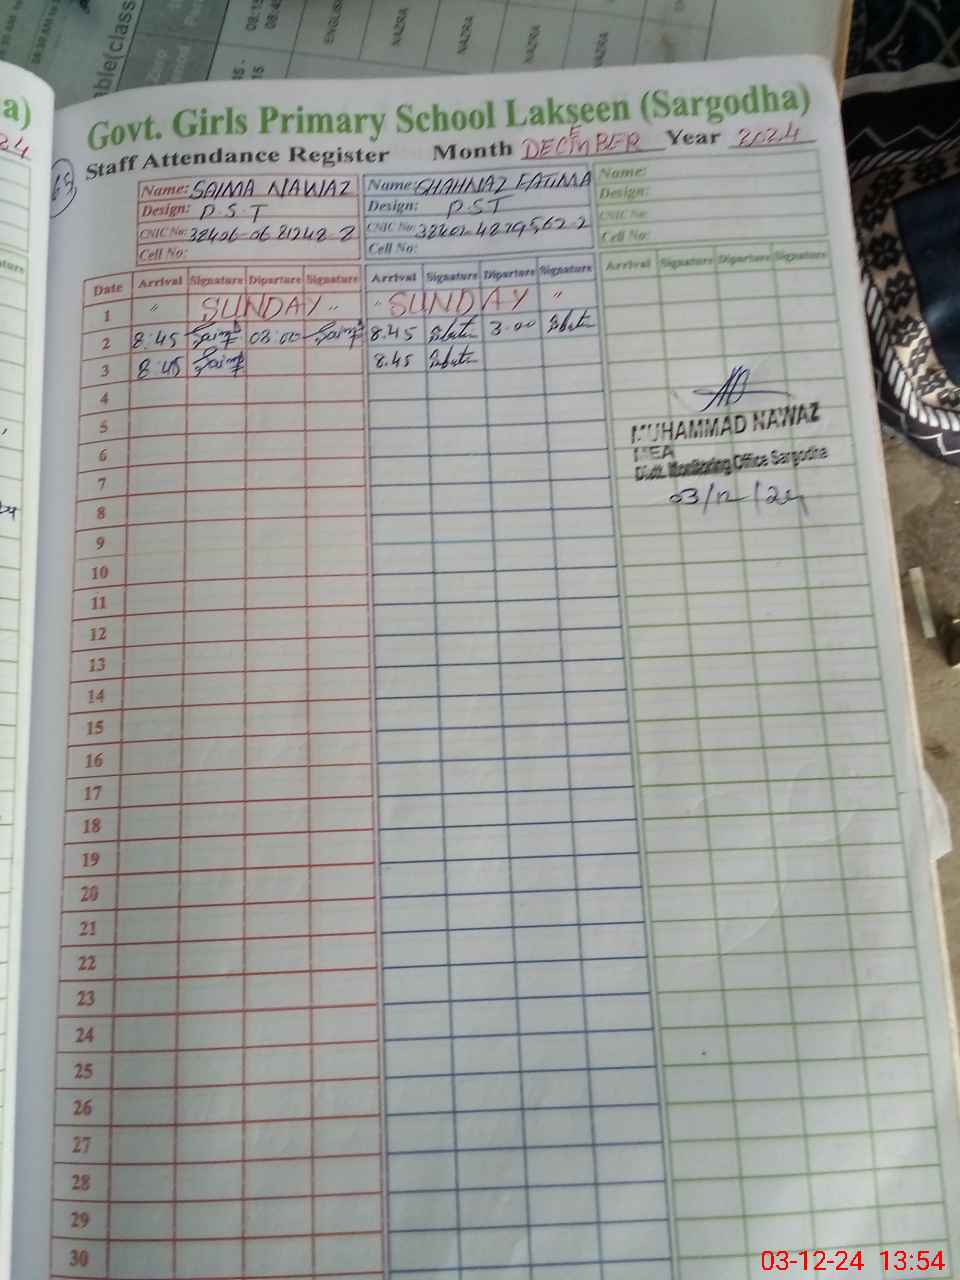 Govt. Girls Primary School Lakseen (Sargodha)
Staff Attendance Register Month DECEMBER Year 2024
Name: SAIMA NAWAZ Name: SHAHNAZ FATIMA Name:
Design: P.S.T Design: PST Design:
CNIC No: 38406-0681248-2 CNIC No: CNIC No:
Cell No: Cell No: Cell No:
Date Arrival Signature Diparture Signature Arrival Signature Diparture Signature Arrival Signature Diparture Signature
1 " SUNDAY " " SUNDAY "
2 8:45 03:00 8.45 3.00
3 8:45 8.45
4
5
MUHAMMAD NAWAZ
6
MEA
Distt. Monitoring Office Sargodha
7
03/12/24
8
9
10
11
12
13
14
15
16
17
18
19
20
21
22
23
24
25
26
27
28
29
30
03-12-24 13:54
a)
24
ENGLISH
NAZRA
NAZRA
NAZRA
NAZRA